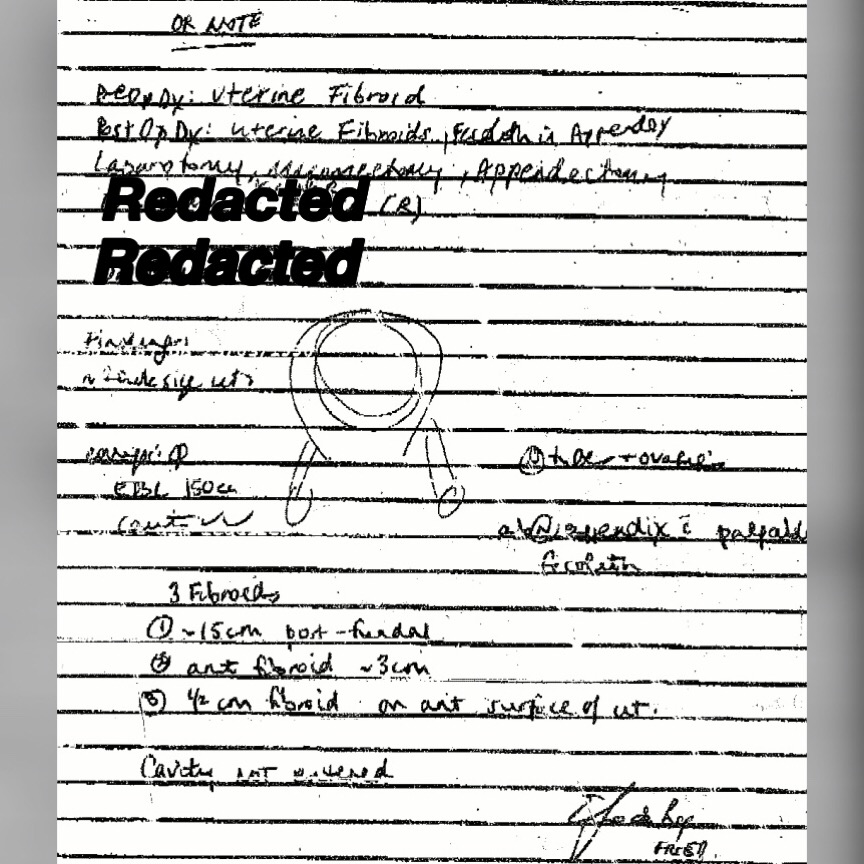 OR NOTE
PreOp Dx: Uterine Fibroid
Post Op Dx: Uterine Fibroids, Fecolith in Appendix
Laparotomy, Myomectomy, Appendectomy
Redacted (R)
Redacted
Findings:
size ut
EBL 150cc
Count ✓✓
tube + ovaries
abN appendix c̄ palpable
fecolith
3 Fibroids
① ~15cm post-fundal
② ant fibroid ~3cm
③ 1/2 cm fibroid on ant surface of ut.
Cavity not entered